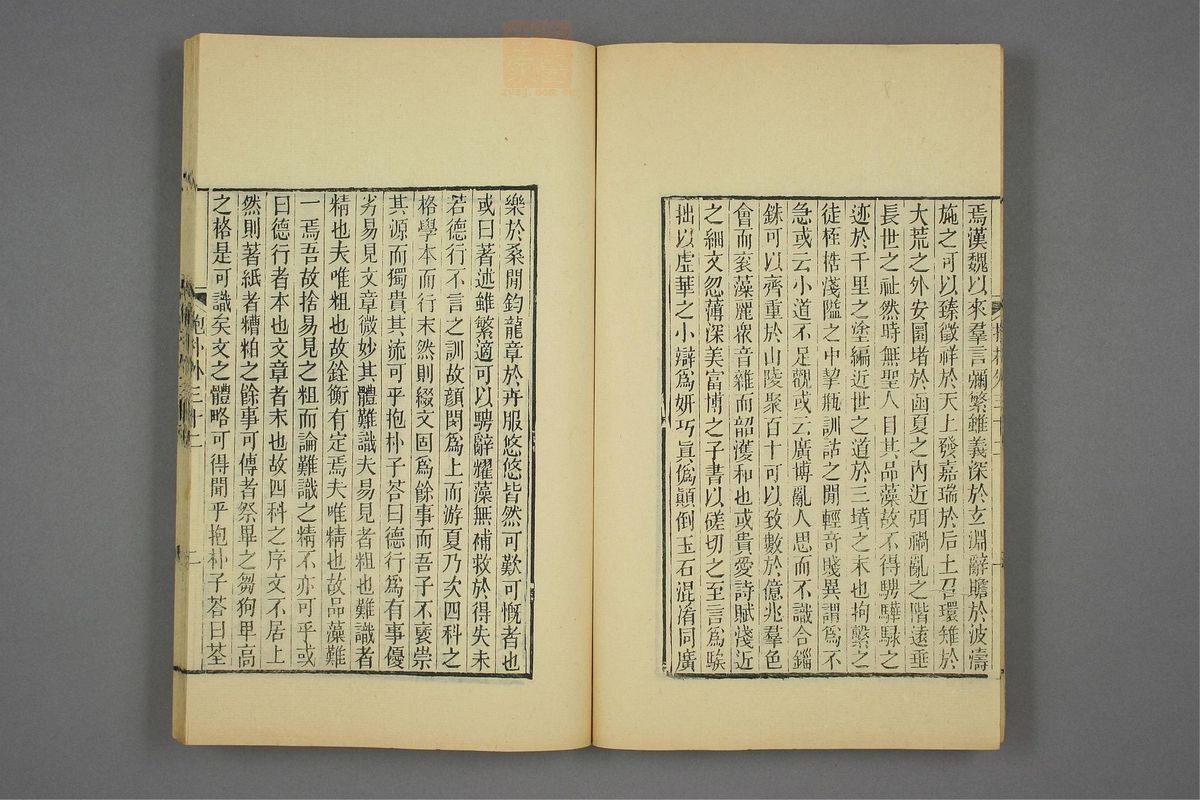 焉漢魏以來羣言彌繁雖義深於玄淵辭贍於波濤
施之可以臻徵祥於天上發嘉瑞於后土召環雉於
大荒之外安圜堵於函夏之內近弭禍亂之階遠垂
長世之祉然時無聖人目其品藻故不得騁驊騄之
迹於千里之塗編近世之道於三墳之末也拘繫之
徒桎梏淺隘之中挈瓶訓詁之閒輕奇賤異謂爲不
急或云小道不足觀或云廣博亂人思而不識合錙
銖可以齊重於山陵聚百十可以致數於億兆羣色
會而袞藻麗衆音雜而韶濩和也或貴愛詩賦淺近
之細文忽薄深美富博之子書以磋切之至言爲騃
拙以虛華之小辯爲妍巧眞僞顚倒玉石混淆同廣
樂於桑閒鈞龍章於卉服悠悠皆然可歎可慨者也
或曰著述雖繁適可以騁辭耀藻無補救於得失未
若德行不言之訓故顏閔爲上而游夏乃次四科之
格學本而行末然則綴文固爲餘事而吾子不褒崇
其源而獨貴其流可乎抱朴子荅曰德行爲有事優
劣易見文章微妙其體難識夫易見者粗也難識者
精也夫唯粗也故銓衡有定焉夫唯精也故品藻難
一焉吾故捨易見之粗而論難識之精不亦可乎或
曰德行者本也文章者末也故四科之序文不居上
然則著紙者糟粕之餘事可傳者祭畢之芻狗卑高
之格是可識矣文之體略可得聞乎抱朴子荅曰荃
抱朴外三十二
二